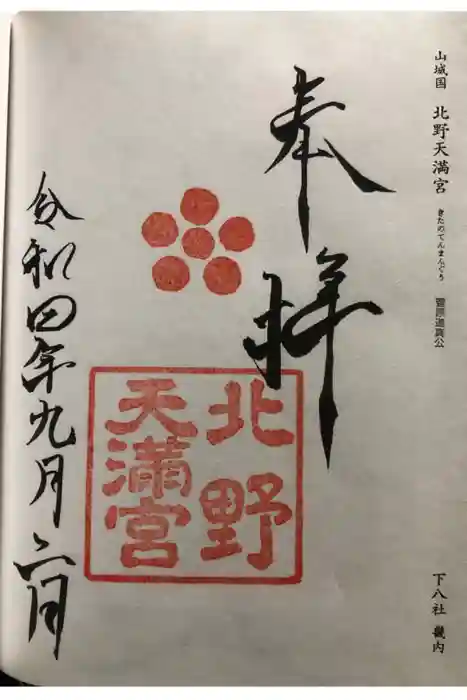 山城国 北野天満宮 きたのてんまんぐう 菅原道真公
下八社 畿内
奉拝
北野
天満宮
令和四年九月六日